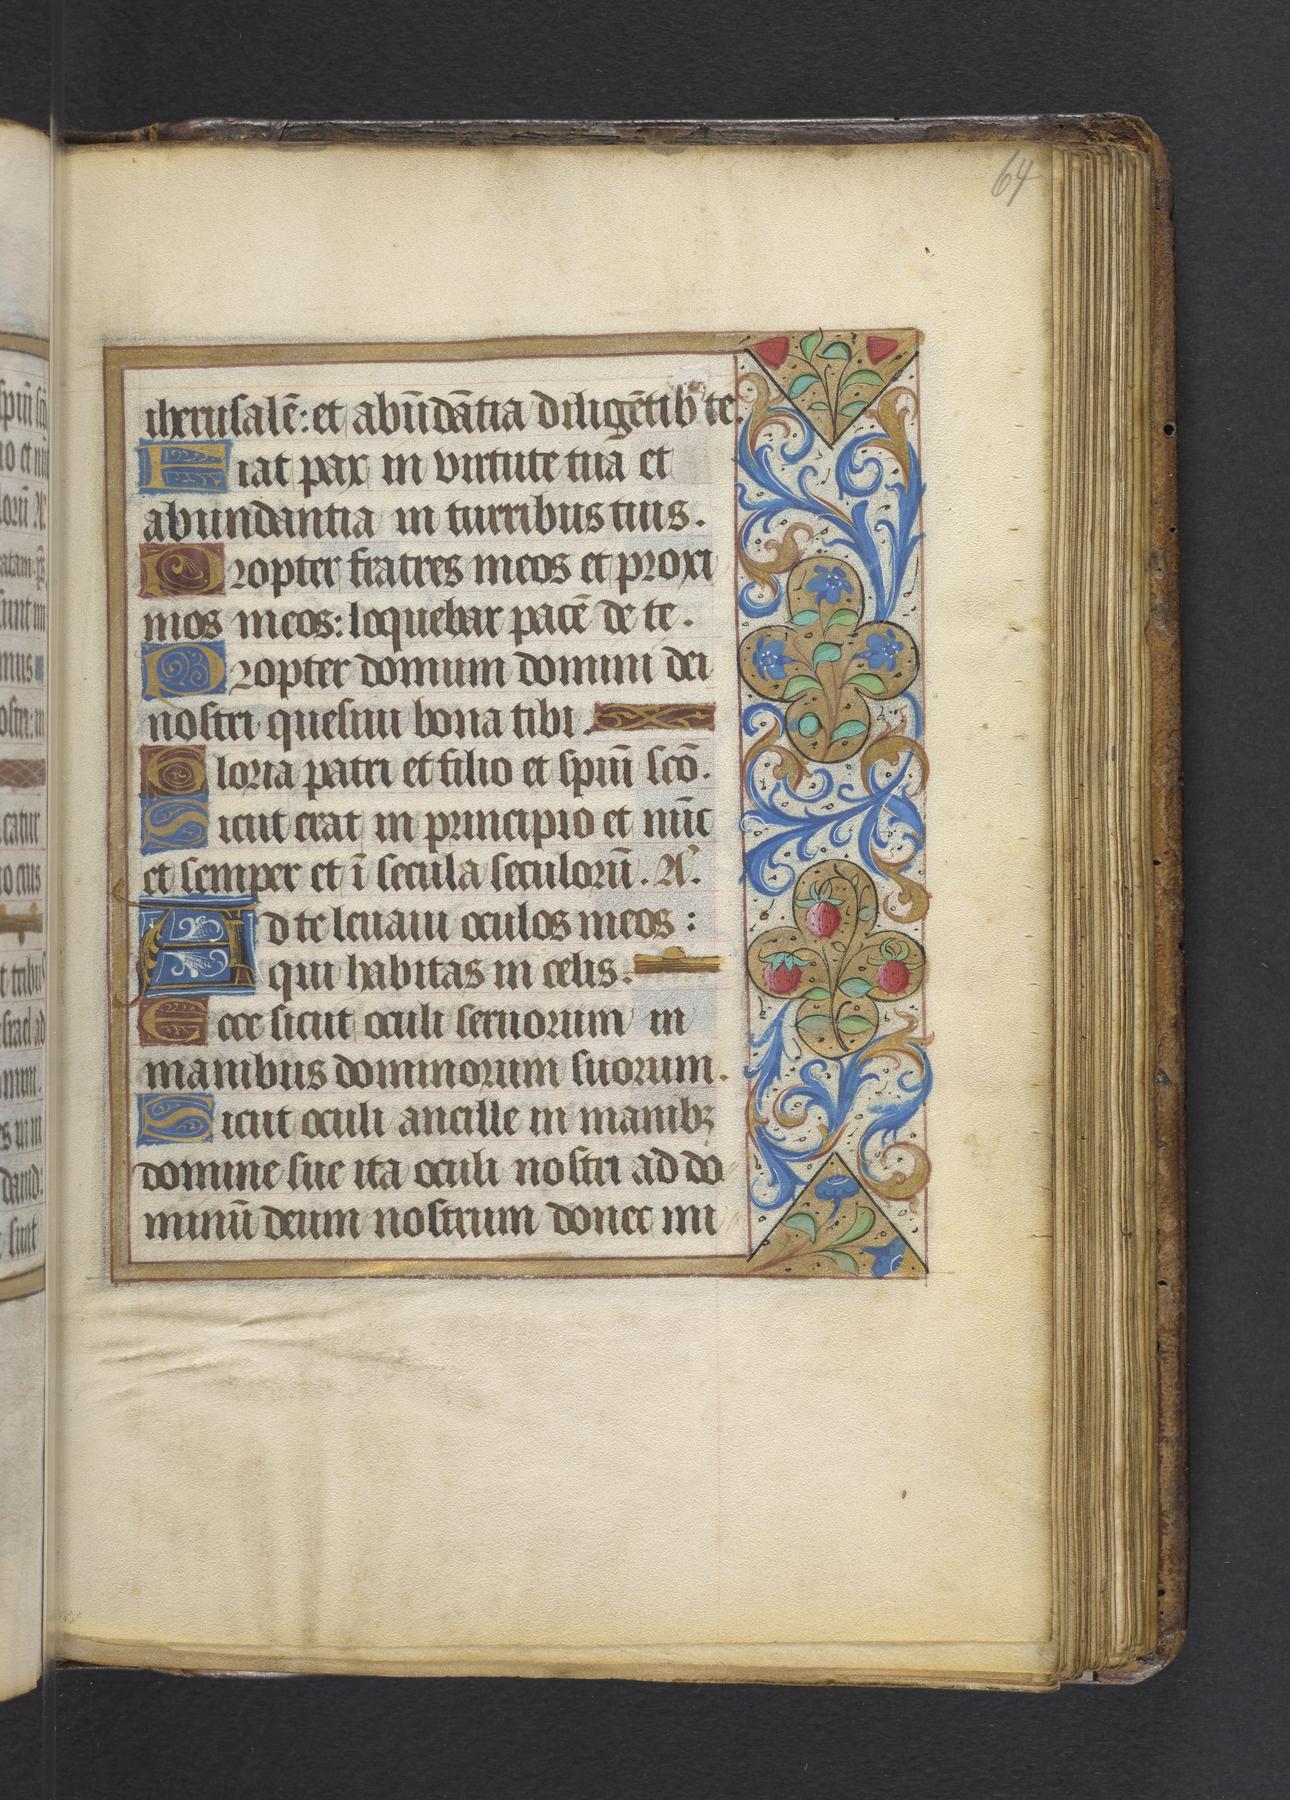 64
iherusalē: et abūdātia diligētib' te.
Fiat pax in virtute tua et
abundantia in turribus tuis.
Propter fratres meos et proxi
mos meos: loquebar pacē de te.
Propter domum domini dei
nostri quesiui bona tibi.
Gloria patri et filio et spiri scō.
Sicut erat in principio et nūc
et semper et ī secula seculorū. A'.
Ad te leuaui oculos meos:
qui habitas in celis.
Ecce sicut oculi seruorum in
manibus dominorum suorum.
Sicut oculi ancille in manibꝫ
domine sue ita oculi nostri ad do
minū deum nostrum donec mi